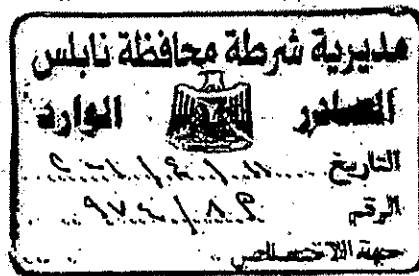 مديرية شرطة محافظة نابلس
الصادر الوارد
التاريخ
الرقم
جهة الاختصاص